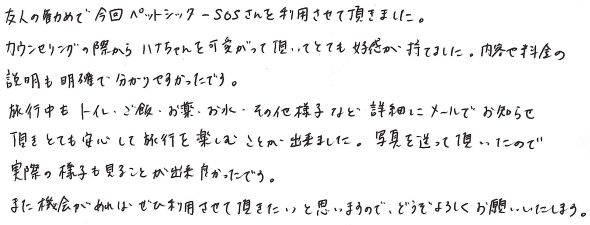 友人の勧めで今回ペットシッターSOSさんを利用させて頂きました。
カウンセリングの際からハナちゃんを可愛がって頂いてとても好感が持てました。内容や料金の
説明も明確で分かりやすかったです。
旅行中もトイレ・ご飯・お薬・お水・その他様子など詳細にメールでお知らせ
頂きとても安心して旅行を楽しむことが出来ました。写真を送って頂いたので
実際の様子も見ることが出来良かったです。
また機会があればぜひ利用させて頂きたいと思いますので、どうぞよろしくお願いいたします。